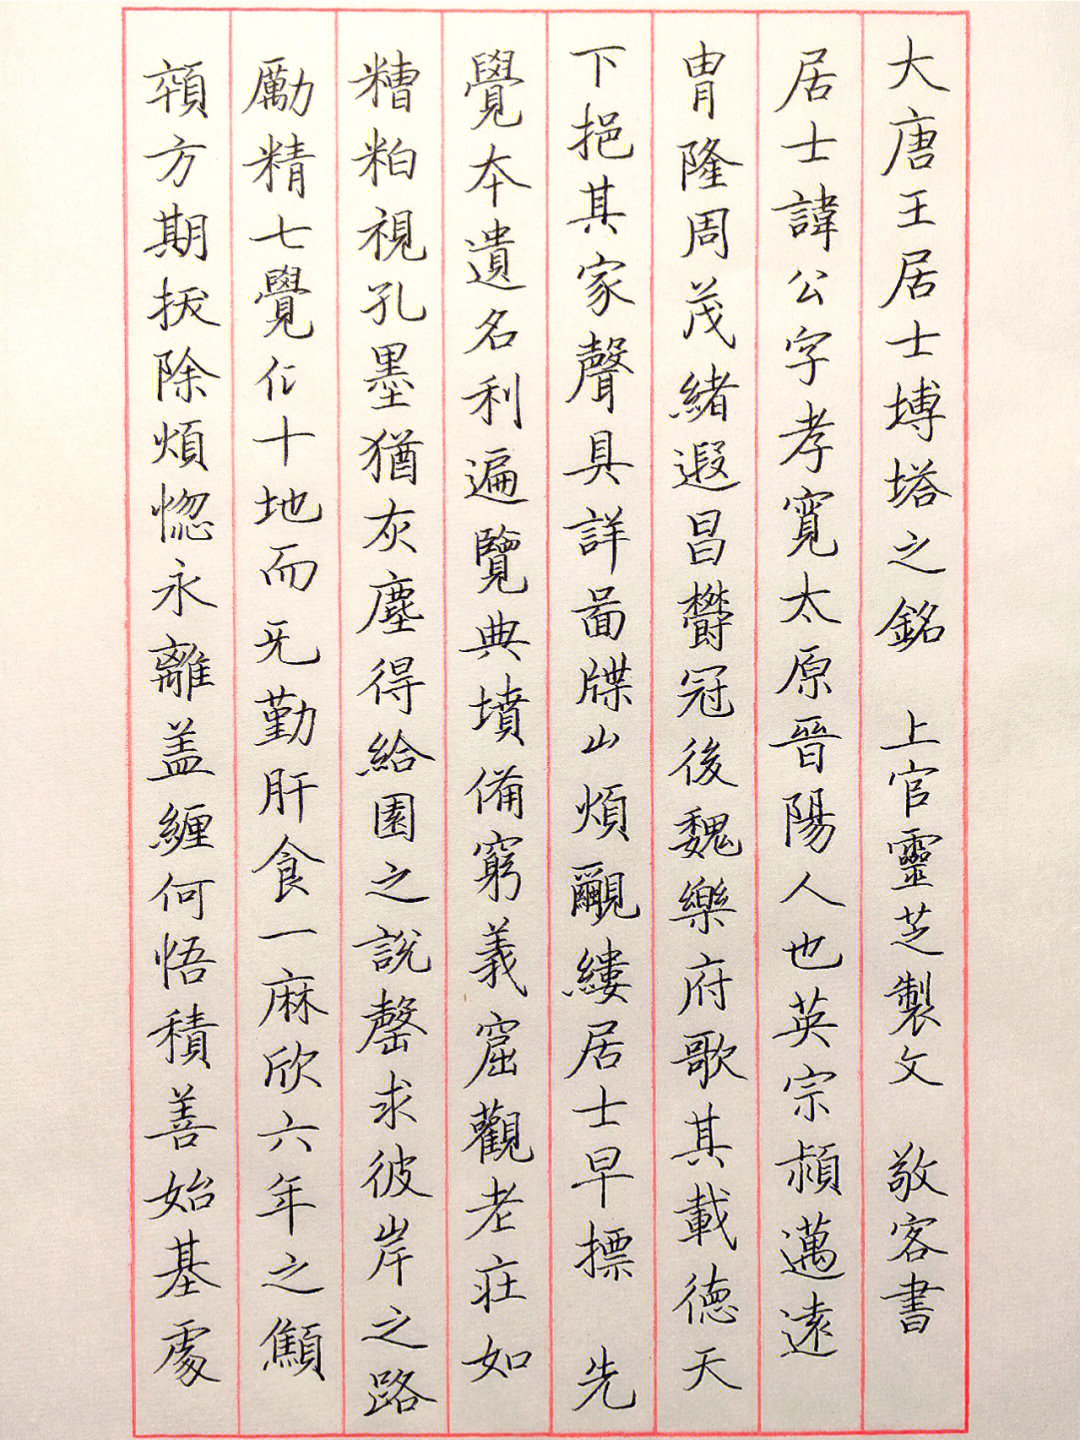 大唐王居士塼塔之銘　上官靈芝製文　敬客書
居士諱公字孝寬太原晉陽人也英宗頴邁遠
胄隆周茂緒遐昌欝冠後魏樂府歌其載德天
下挹其家聲具詳啚牒山煩覼縷居士早摽　先
覺夲遺名利遍覽典墳備窮義窟觀老莊如
糟粕視孔墨猶灰塵得給園之說罄求彼岸之路
勵精七覺仁十地而旡勤肝食一麻欣六年之顦
顇方期拔除煩惚永離盖纏何悟積善始基處